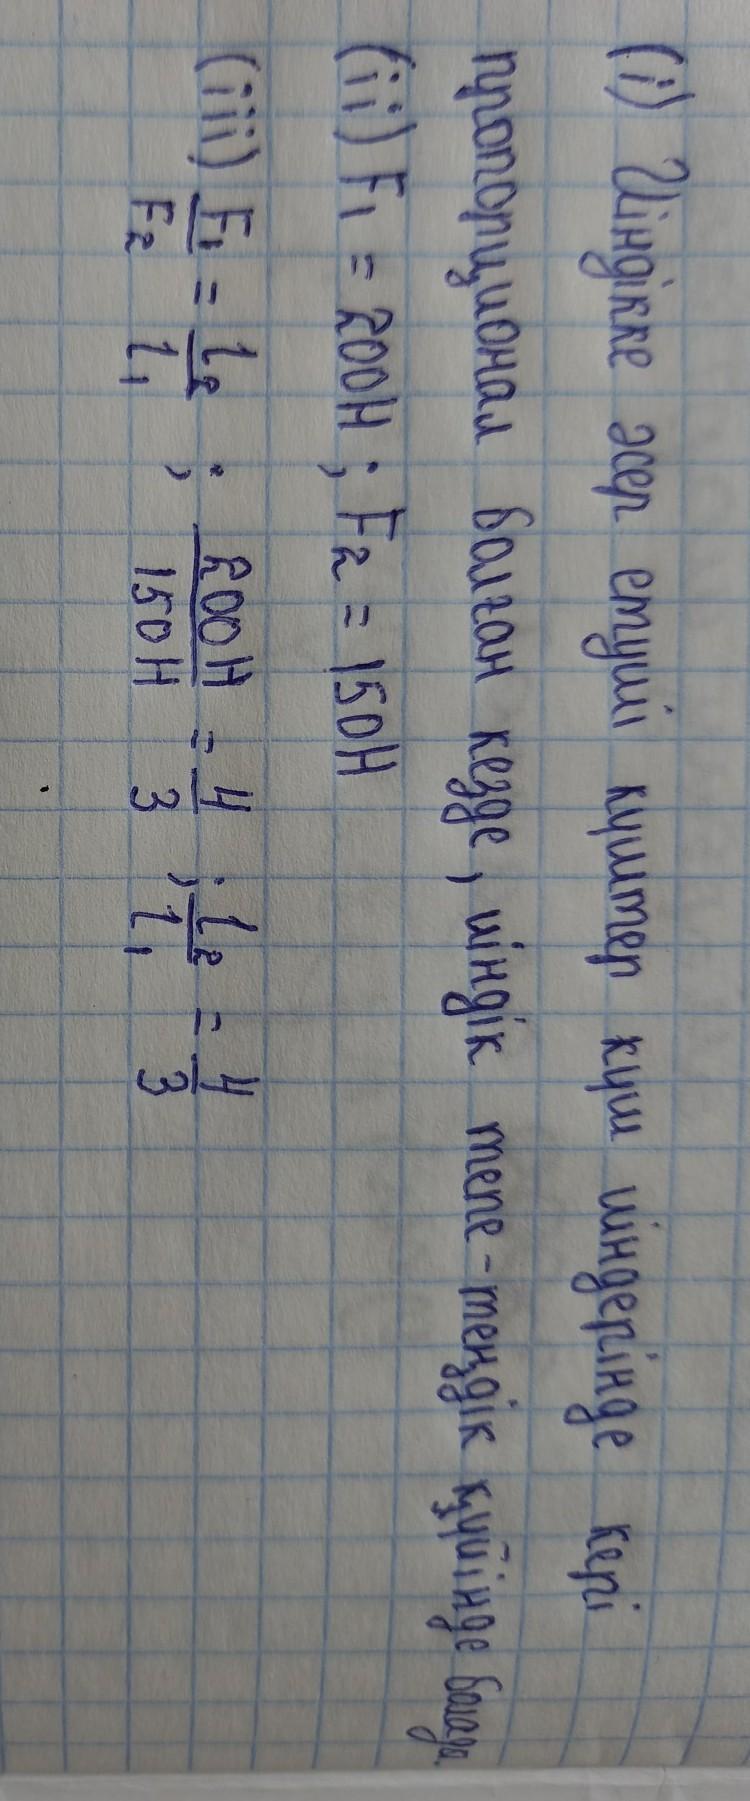 (i) Иіндікке әсер етуші күштер күш иіндерінде кері
пропорционал болған кезде, иіндік тепе-теңдік күйінде болады.
(ii) F₁ = 200Н ; F₂ = 150Н
(iii) F₁/F₂ = l₂/l₁ ; 200Н/150Н = 4/3 ; l₂/l₁ = 4/3